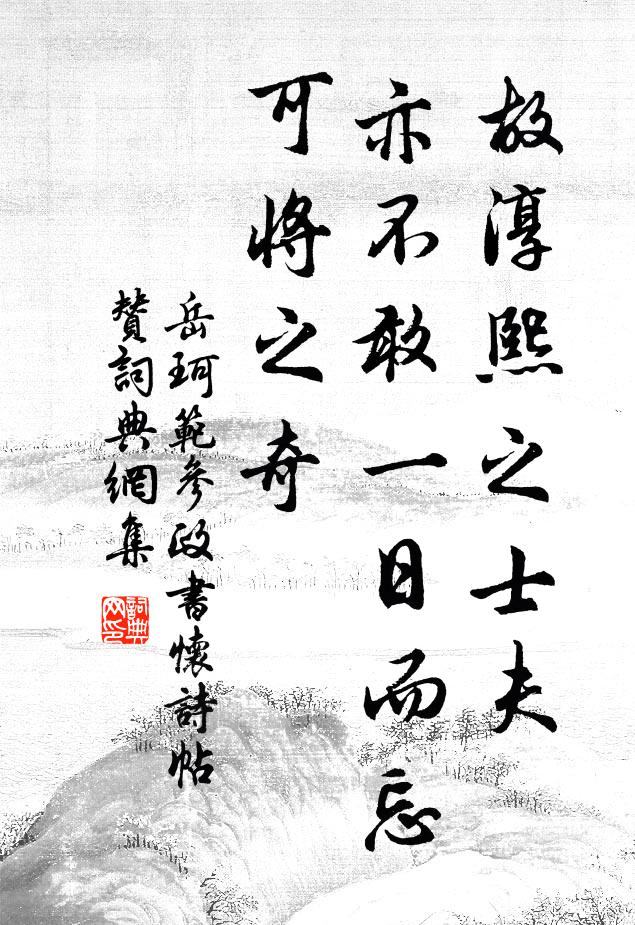 故淳熙之士夫
亦不敢一日而忘
可將之奇
岳珂範參政書懷詩帖
贊詞典網集
詞典
网印